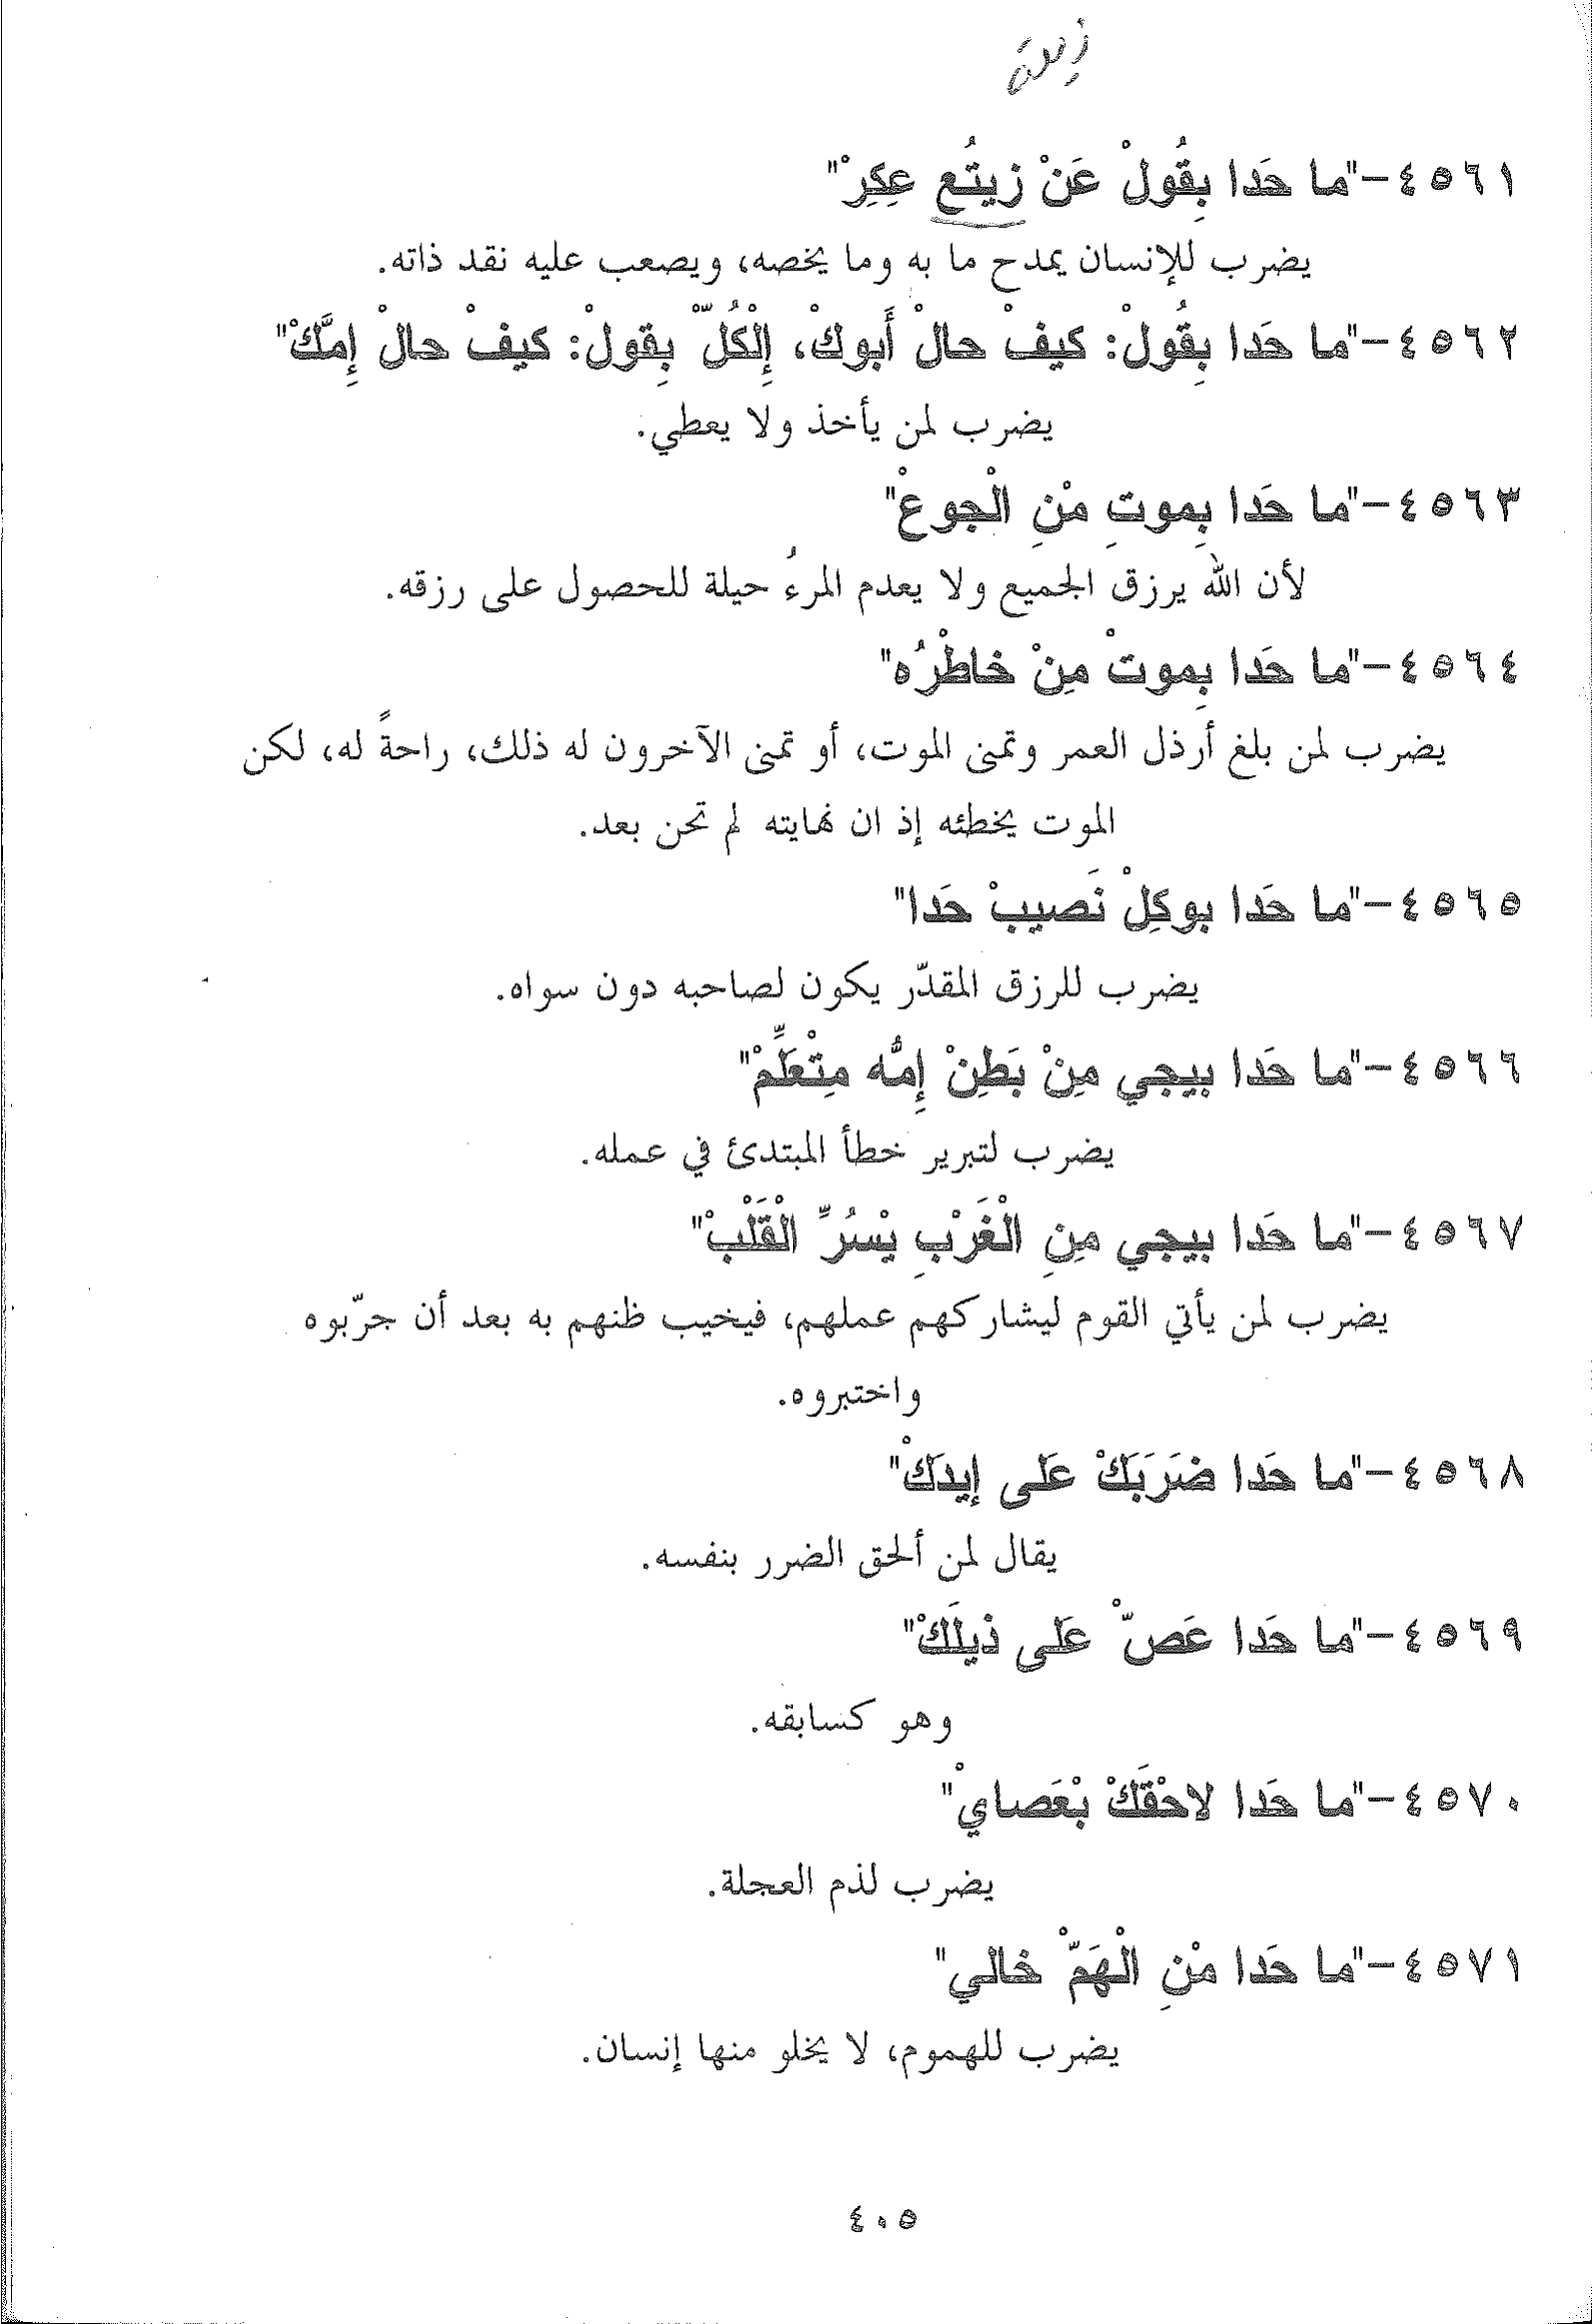 ٤٥٦١-"ما حَدا بِقُولْ عَنْ زيتُع عِكِرْ"
يضرب للإنسان يمدح ما به وما يخصه، ويصعب عليه نقد ذاته.
٤٥٦٢-"ما حَدا بِقُولْ: كيفْ حالْ أَبوكْ، إِلْكُلّْ بِقولْ: كيفْ حالْ إِمَّكْ"
يضرب لمن يأخذ ولا يعطي.
٤٥٦٣-"ما حَدا بِموتِ مْنِ الْجوعْ"
لأن الله يرزق الجميع ولا يعدم المرءُ حيلة للحصول على رزقه.
٤٥٦٤-"ما حَدا بِموتْ مِنْ خاطْرُه"
يضرب لمن بلغ أرذل العمر وتمنى الموت، أو تمنى الآخرون له ذلك، راحةً له، لكن
الموت يخطئه إذ ان نهايته لم تحن بعد.
٤٥٦٥-"ما حَدا بوكِلْ نَصيبْ حَدا"
يضرب للرزق المقدّر يكون لصاحبه دون سواه.
٤٥٦٦-"ما حَدا بيجي مِنْ بَطِنْ إِمُّه مِتْعَلِّمْ"
يضرب لتبرير خطأ المبتدئ في عمله.
٤٥٦٧-"ما حَدا بيجي مِنِ الْغَرْبِ يْسُرِّ الْقَلْبْ"
يضرب لمن يأتي القوم ليشاركهم عملهم، فيخيب ظنهم به بعد أن جرّبوه
واختبروه.
٤٥٦٨-"ما حَدا ضَرَبَكْ عَلى إيدَكْ"
يقال لمن ألحق الضرر بنفسه.
٤٥٦٩-"ما حَدا عَصّْ عَلى ذيلَكْ"
وهو كسابقه.
٤٥٧٠-"ما حَدا لاحْقَكْ بْعَصايْ"
يضرب لذم العجلة.
٤٥٧١-"ما حَدا مْنِ الْهَمّْ خالي"
يضرب للهموم، لا يخلو منها إنسان.
٤٠٥